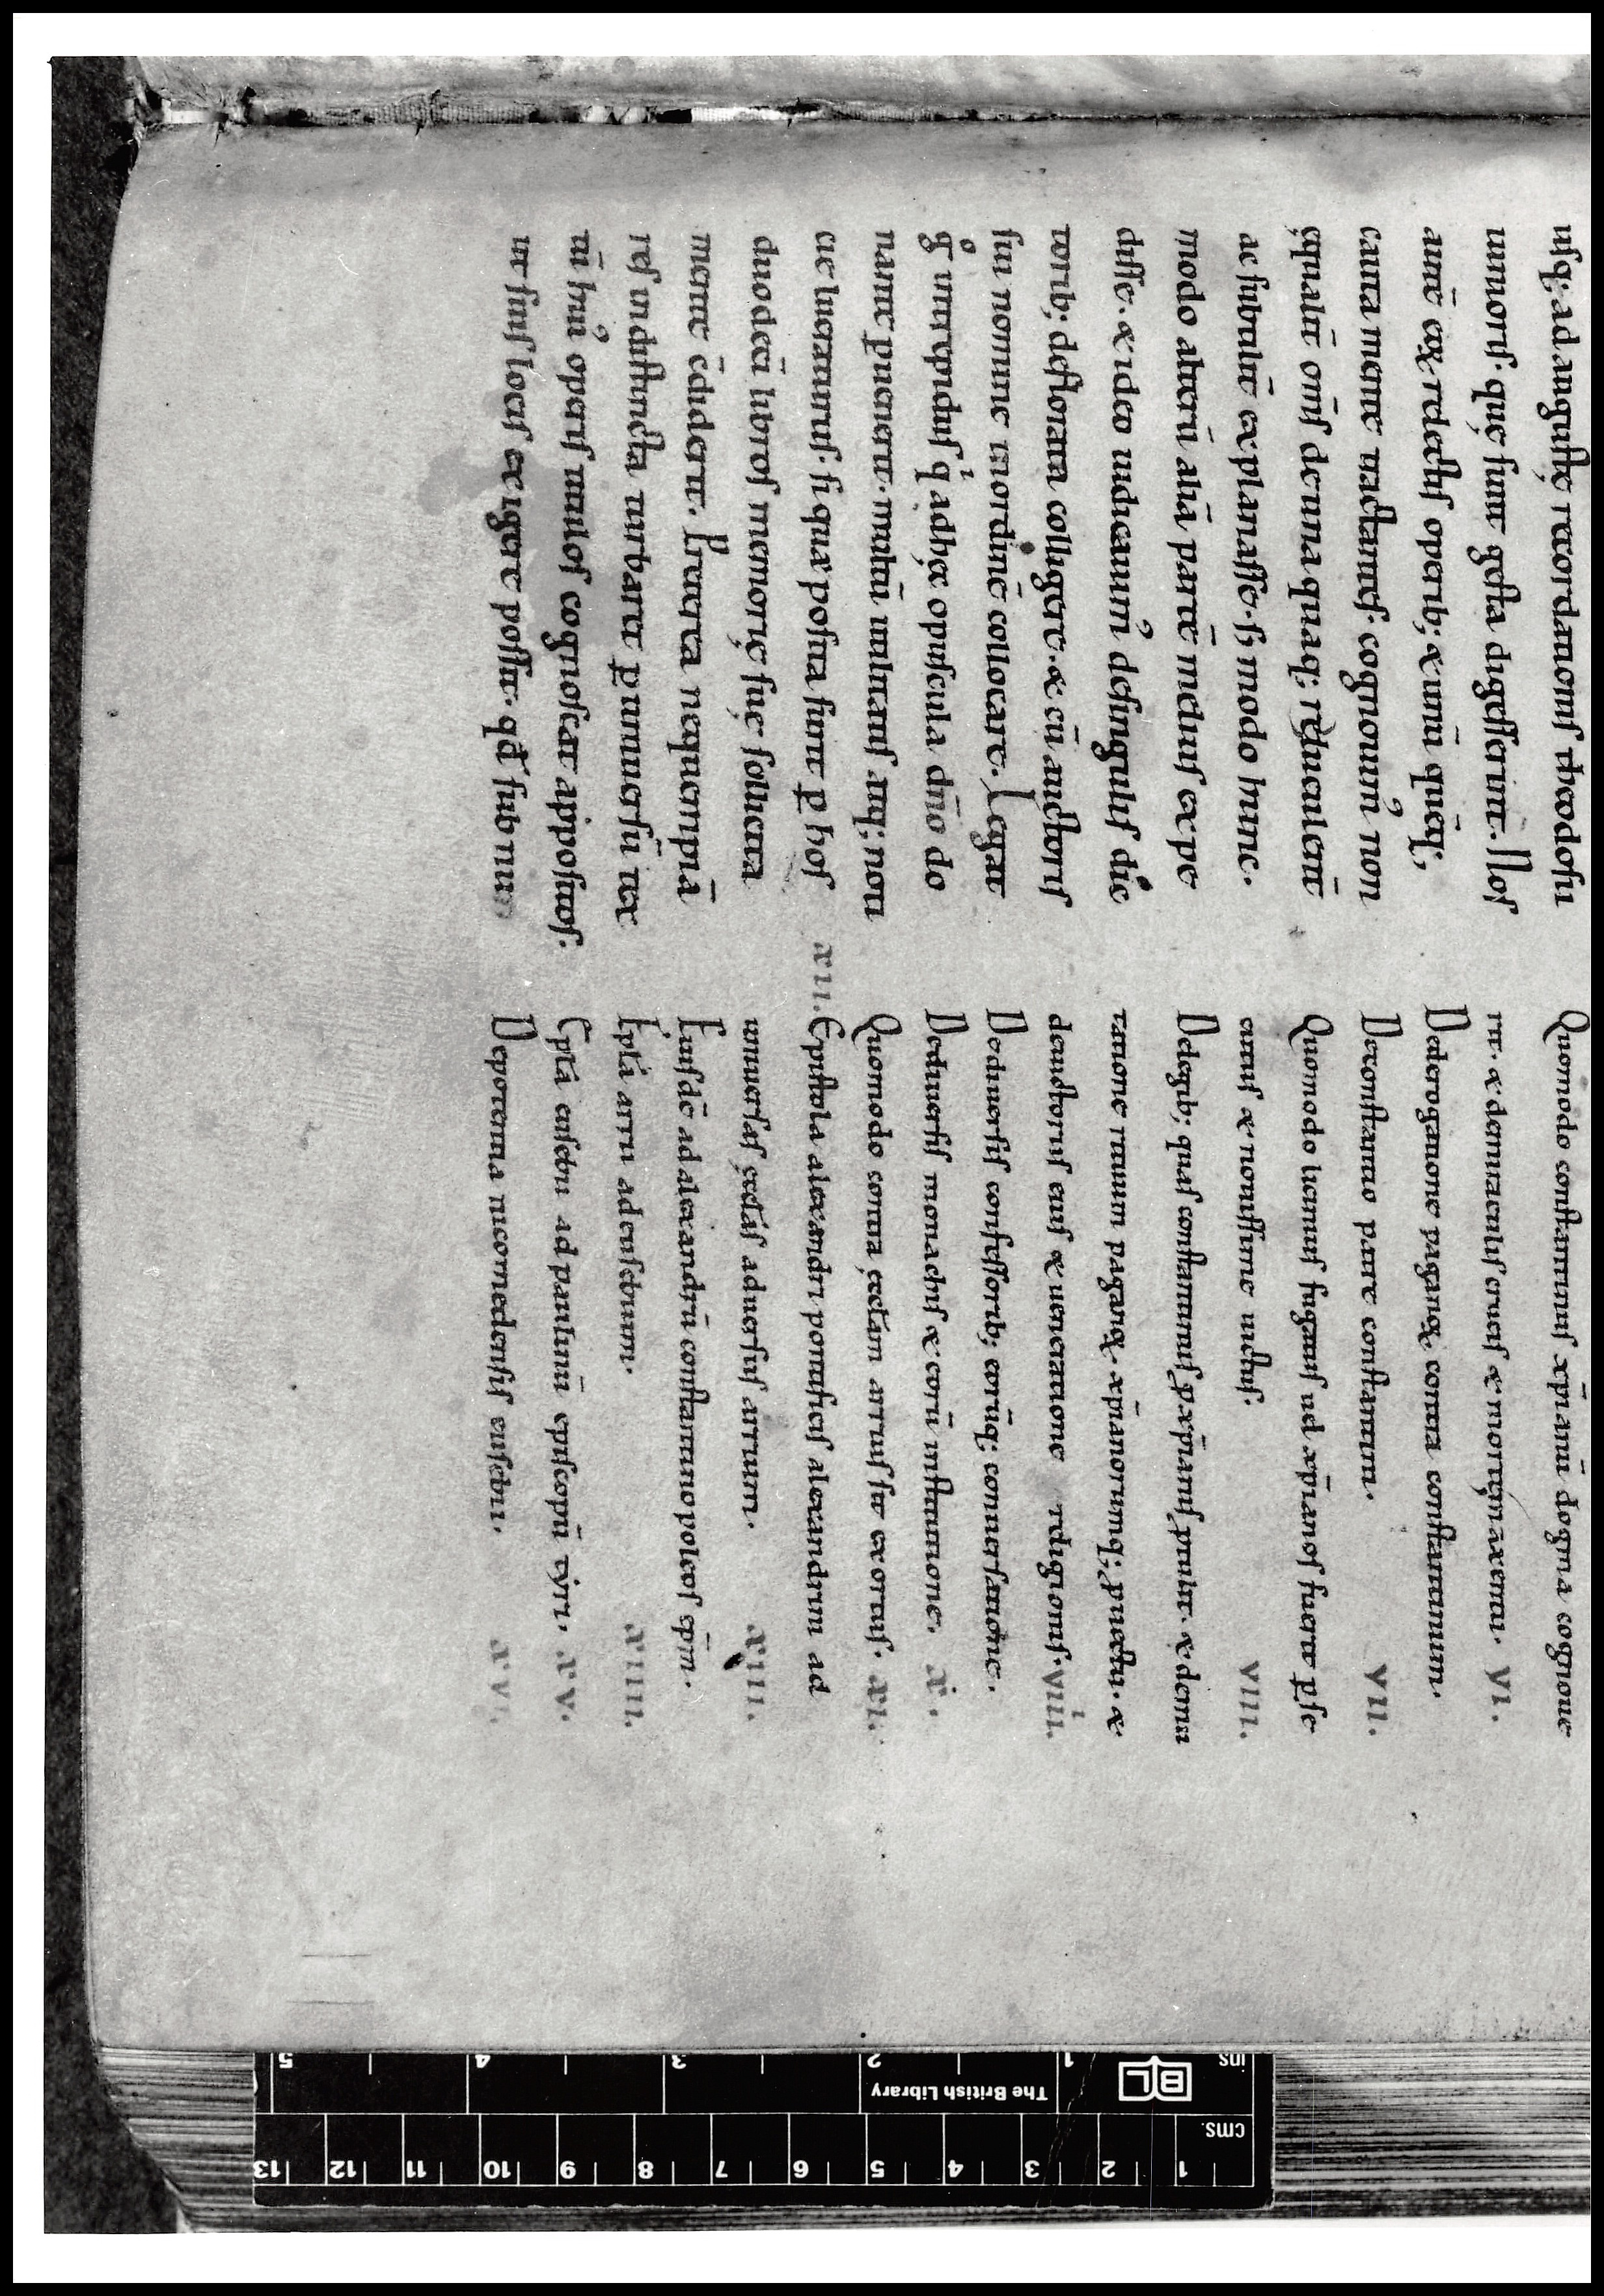 usq; ad augustę recordationis theodosii
iunioris. quę sunt gesta digesserunt. Nos
aut̄ ex relectis operib; & unū quēq;
cauta mente tractantes. cognouim᷒ non
ęqualit̄ om̄s de una quaq; re luculent̄
ac subtilit̄ explanasse. s; modo hunc.
modo alterū aliā partē melius expe
disse. & ideo iudicauim᷒ de singulis dic
torib; deflorata colligere. & cū auctoris
sui nomine inordinē collocare. Legat
g̊ intrepidus qͥ adhęc opuscula dn̄o do
nante puenerit. multū utilitatis atq; noui
tatis inueniturus. si quae posita sunt p hos
duodeci libros memorię suę sollicita
mente c̄diderit. Pretera nequempiā
res indistincta turbaret p uniuersū tex
tū hui᷒ operis titulos cognoscat appositos.
ut suis locis exigere possit. qd̄ sub nu
Quomodo constantinus xp̄ianū dogma cognoue
rit. & de miraculis crucis & morte maxentii. VI.
De derogatione paganę contra constantinum.
De constantio patre constantini. VII.
Quomodo licinius fugauit uel xp̄ianos fuerit pse
cutus & nouissime uictus. VIII.
De legib; quas constantinus p xp̄ianis ptulit. & de mu
tatione rituum paganę. xp̄ianorumq; puectu. &
de uictoriis eius & ueneratione religionis. VIIII.
De diuersis confessorib; eorūq; conuersatione.
De diuersis monachis & eorū institutione. X.
Quomodo contra ęccłam arrius sit exortus. XI.
XII. Epistola alexandri pontificis alexandrini ad
uniuersas ęccłas aduersus arrium. XIII.
Eiusdē ad alexandrū constantinopoleos ep̄m.
Epła arrii ad eusebium. XIIII.
Epła eusebii ad paulinū episcopū tyri. XV.
De potentia nicomedensis eusebii. XVI.
The British Library
BL
ins 1 2 3 4 5
cms. 1 2 3 4 5 6 7 8 9 10 11 12 13